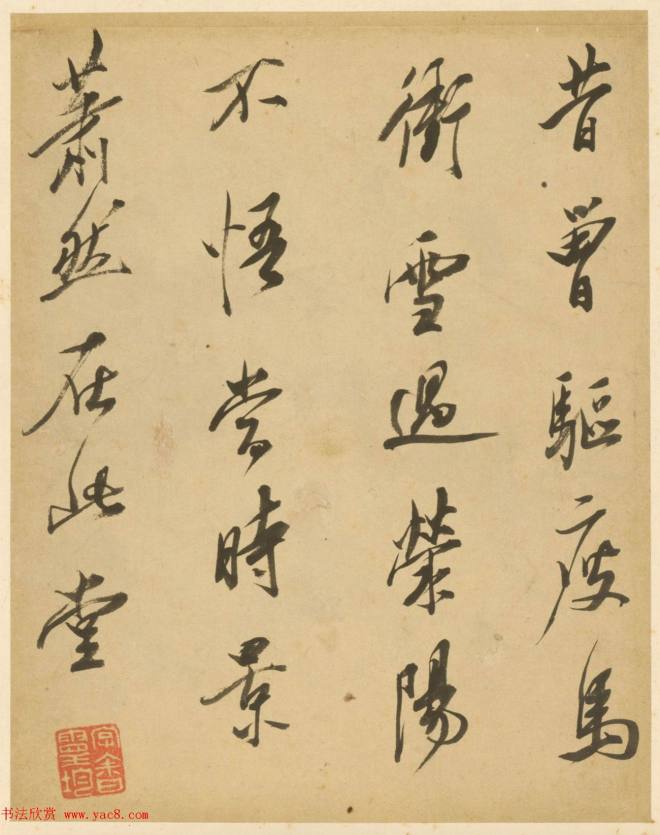 昔曾驅瘦馬
衝雪過榮陽
不悟當時景
蕭然在此堂
書法欣赏 www.yac8.com